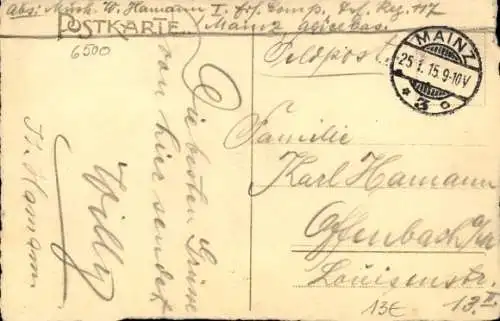 Abs: Musk. W. Hamann I. Ers. Komp. Inf. Reg. 117
Mainz,
POSTKARTE
6500
Feldpost
MAINZ
-25.1.15.9-10V
* 3 o
Familie
Karl Hamann
Offenbach a/M
Louisenstr.
13 II
13€
Die besten Grüsse
von hier sendet
Willy
Hamann